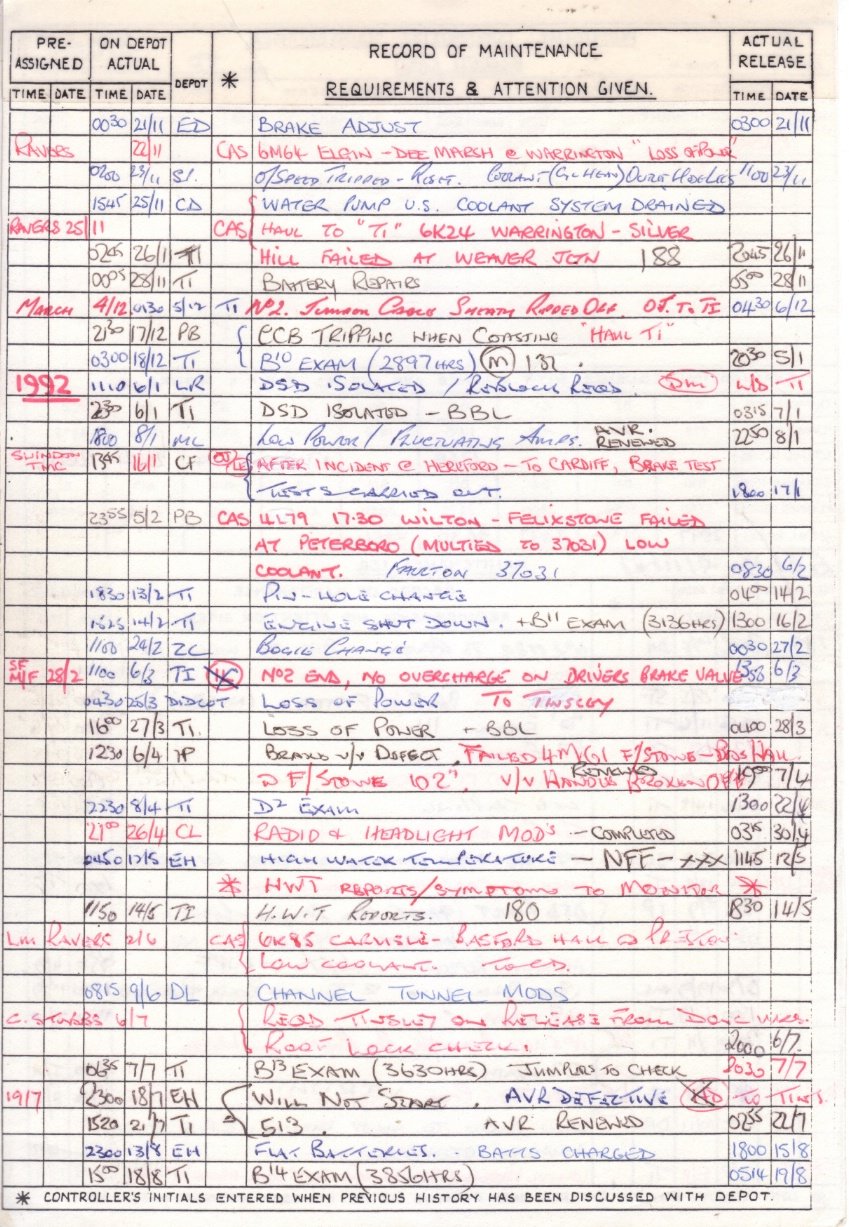 PRE-ASSIGNED ON DEPOT ACTUAL DEPOT * RECORD OF MAINTENANCE REQUIREMENTS & ATTENTION GIVEN. ACTUAL RELEASE
TIME DATE TIME DATE TIME DATE
0030 21/11 ED BRAKE ADJUST 0300 21/11
RAVERS 22/11 CAS 6M64 ELGIN - DEE MARSH @ WARRINGTON "LOSS OF POWER"
0200 23/11 O/SPEED TRIPPED - RESET. COOLANT 1100 23/11
1545 25/11 CD WATER PUMP U.S. COOLANT SYSTEM DRAINED
RAVERS 25/11 CAS HAUL TO "TI" 6K24 WARRINGTON - SILVER
0245 26/11 TI HILL FAILED AT WEAVER JCN 188 2045 26/11
0005 28/11 TI BATTERY REPAIRS 0500 28/11
MARCH 4/12 0130 5/12 TI No2. JUMPER CABLE SHEATH RIPPED OFF. TO TI 0430 6/12
2130 17/12 PB CCB TRIPPING WHEN COASTING "HAUL TI"
0300 18/12 TI B10 EXAM (2897HRS) (M) 2030 5/1
1992 1110 6/1 LR DSD ISOLATED / REQD. TI
2300 6/1 TI DSD ISOLATED - BBL 0315 7/1
8/1 ML LOW POWER / FLUCTUATING AMPS. AVR. RENEWED 2250 8/1
SWINDON TMC 1345 16/1 CF AFTER INCIDENT @ HEREFORD - TO CARDIFF, BRAKE TEST
TESTS CARRIED OUT. 1800 17/1
2355 5/2 PB CAS 4L79 17:30 WILTON - FELIXSTOWE FAILED
AT PETERBORO (MULTIED TO 37031) LOW
COOLANT. FAULT ON 37031 0830 6/2
1830 13/2 TI PIN-HOLE CHANGE 0400 14/2
14/2 TI ENGINE SHUT DOWN. + B11 EXAM (3136HRS) 1300 16/2
1100 24/2 ZC BOGIE CHANGE 0030 27/2
SF M/F 28/2 1100 6/3 TI No2 END, NO OVERCHARGE ON DRIVERS BRAKE VALVE 6/3
0430 DIDCOT LOSS OF POWER TO TINSLEY
1600 27/3 TI. LOSS OF POWER + BBL 0400 28/3
1230 6/4 IP BRAKE V/V DEFECT, FAILED 4MG1 F/STOWE - HALL
@ F/STOWE 102". V/V HANDLE BROKEN OFF RENEWED 7/4
2230 8/4 TI D2 EXAM 1300 22/4
2100 26/4 CL RADIO & HEADLIGHT MODS - COMPLETED 0315 30/4
0450 12/5 EH HIGH WATER TEMPERATURE - NFF - XXX 1145 12/5
* HWT REPORTS/SYMPTOMS TO MONITOR *
1150 14/5 TI H.W.T REPORTS. 180 1830 14/5
LM RAVERS 2/6 CAS 6K85 CARLISLE - BASFORD HALL @ PRESTON
LOW COOLANT. TO CD.
0815 9/6 DL CHANNEL TUNNEL MODS
C. STUBBS 6/7 REQD TINSLEY ON RELEASE FROM DONC WKS.
ROOF LOCK CHECK. 2000 6/7.
0635 7/7 TI B13 EXAM (3630HRS) JUMPERS TO CHECK 2030 7/7
19/7 2300 18/7 EH WILL NOT START. AVR DEFECTIVE TO TINS.
1520 21/7 TI 513. AVR RENEWED 0255 22/7
2300 13/8 EH FLAT BATTERIES. - BATTS CHARGED 1800 15/8
1500 18/8 TI B14 EXAM (3856HRS) 0514 19/8
* CONTROLLER'S INITIALS ENTERED WHEN PREVIOUS HISTORY HAS BEEN DISCUSSED WITH DEPOT.